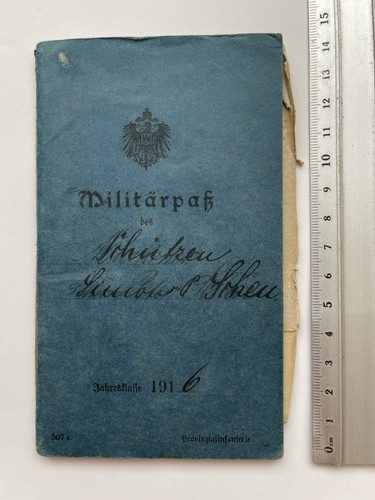 Militärpaß
des
Schützen
Jahresklasse 1916
507a
Provinzialinfanterie.
0cm 1 2 3 4 5 6 7 8 9 10 11 12 13 14 15